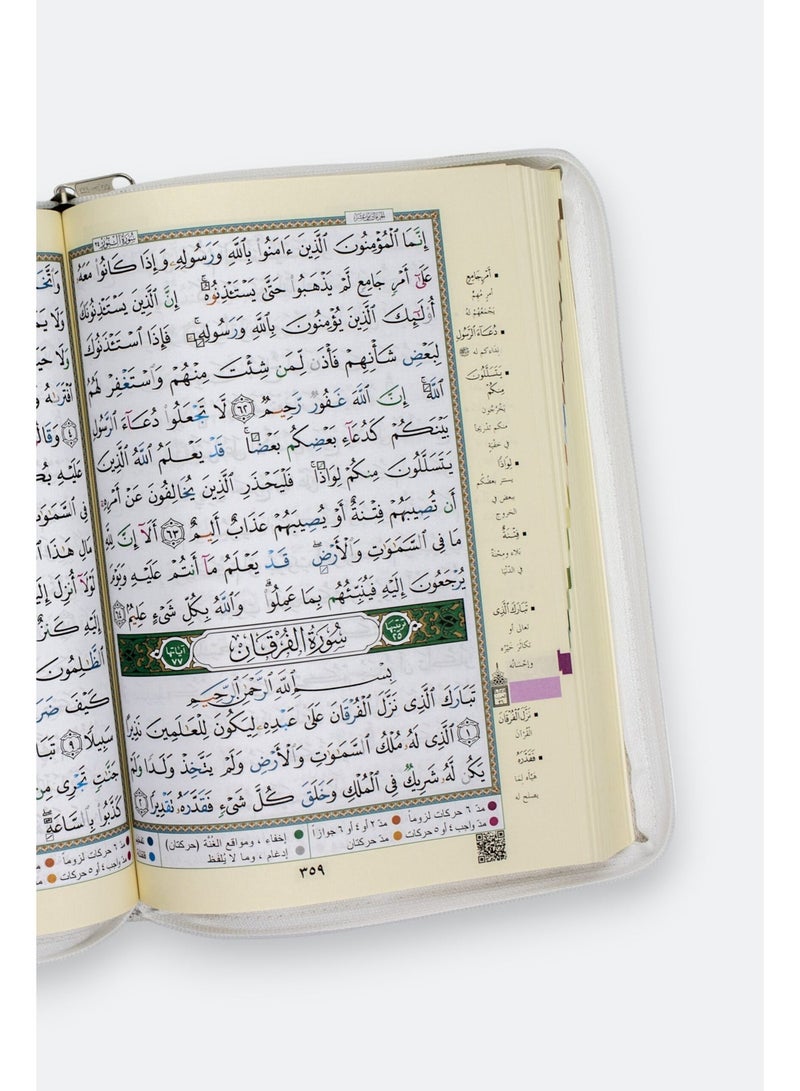 سُورَةُ النُّورِ ٢٤
إِنَّمَا الْمُؤْمِنُونَ الَّذِينَ ءَامَنُوا بِاللَّهِ وَرَسُولِهِ وَإِذَا كَانُوا مَعَهُ
عَلَىٰ أَمْرٍ جَامِعٍ لَمْ يَذْهَبُوا حَتَّىٰ يَسْتَـْٔذِنُوهُ ۚ إِنَّ الَّذِينَ يَسْتَـْٔذِنُونَكَ
أُولَٰئِكَ الَّذِينَ يُؤْمِنُونَ بِاللَّهِ وَرَسُولِهِ ۚ فَإِذَا اسْتَـْٔذَنُوكَ
لِبَعْضِ شَأْنِهِمْ فَأْذَن لِّمَن شِئْتَ مِنْهُمْ وَاسْتَغْفِرْ لَهُمُ
اللَّهَ ۚ إِنَّ اللَّهَ غَفُورٌ رَّحِيمٌ ٦٢ لَّا تَجْعَلُوا دُعَاءَ الرَّسُولِ
بَيْنَكُمْ كَدُعَاءِ بَعْضِكُم بَعْضًا ۚ قَدْ يَعْلَمُ اللَّهُ الَّذِينَ
يَتَسَلَّلُونَ مِنكُمْ لِوَاذًا ۚ فَلْيَحْذَرِ الَّذِينَ يُخَالِفُونَ عَنْ أَمْرِهِ
أَن تُصِيبَهُمْ فِتْنَةٌ أَوْ يُصِيبَهُمْ عَذَابٌ أَلِيمٌ ٦٣ أَلَا إِنَّ لِلَّهِ
مَا فِي السَّمَٰوَٰتِ وَالْأَرْضِ ۖ قَدْ يَعْلَمُ مَا أَنتُمْ عَلَيْهِ وَيَوْمَ
يُرْجَعُونَ إِلَيْهِ فَيُنَبِّئُهُم بِمَا عَمِلُوا ۗ وَاللَّهُ بِكُلِّ شَيْءٍ عَلِيمٌ ٦٤
ترتيبها ٢٥
سُورَةُ الْفُرْقَانِ
آياتها ٧٧
بِسْمِ اللَّهِ الرَّحْمَٰنِ الرَّحِيمِ
تَبَارَكَ الَّذِي نَزَّلَ الْفُرْقَانَ عَلَىٰ عَبْدِهِ لِيَكُونَ لِلْعَالَمِينَ نَذِيرًا
١ الَّذِي لَهُ مُلْكُ السَّمَٰوَٰتِ وَالْأَرْضِ وَلَمْ يَتَّخِذْ وَلَدًا وَلَمْ
يَكُن لَّهُ شَرِيكٌ فِي الْمُلْكِ وَخَلَقَ كُلَّ شَيْءٍ فَقَدَّرَهُ تَقْدِيرًا ٢
أَمْرٍ جَامِعٍ
أمرٍ مُهِمٍّ
يَجْمَعُهُمْ له
دُعَاءَ الرَّسُولِ
نداءكم له ﷺ
يَتَسَلَّلُونَ
مِنكُمْ
يَخْرُجُون
منكم تدريجاً
في خفية
لِوَاذًا
يستتر بعضُكُم
ببعض في
الخروج
فِتْنَةٌ
بلاء ومحنة
في الدّنيا
تَبَارَكَ الَّذِي
تعالى أو
تكاثر خَيْرُه
وإحْسانُه
نَزَّلَ الْفُرْقَانَ
القُرآن
فَقَدَّرَهُ
هيَّأه لما
يصلح له
مدّ ٦ حركات لزوماً
مدّ ٢ أو ٤ أو ٦ جوازاً
إخفاء ، ومواقع الغنة (حركتان)
مدّ واجب ٤ أو ٥ حركات
مدّ حركتان
إدغام ، وما لا يُلفظ
٣٥٩